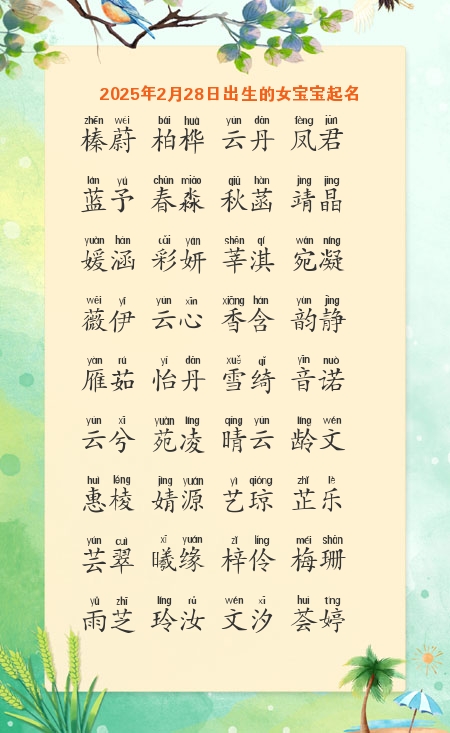 2025年2月28日出生的女宝宝起名
zhēn wèi bái huà yún dān fèng jūn
榛蔚 柏桦 云丹 凤君
lán yú chūn miǎo qiū hàn jìng jīng
蓝予 春淼 秋菡 靖晶
yuàn hán cǎi yán shēn qí wǎn níng
媛涵 彩妍 莘淇 宛凝
wēi yī yún xīn xiāng hán yùn jìng
薇伊 云心 香含 韵静
yàn rú yí dān xuě qǐ yīn nuò
雁茹 怡丹 雪绮 音诺
yún xī yuàn líng qíng yún líng wén
云兮 苑凌 晴云 龄文
huì léng jìng yuán yì qióng zhǐ lè
惠棱 婧源 艺琼 芷乐
yún cuì xī yuán zǐ líng méi shān
芸翠 曦缘 梓伶 梅珊
yǔ zhī líng rǔ wén xī huì tíng
雨芝 玲汝 文汐 荟婷